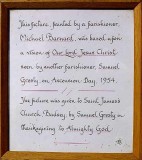 This picture, painted by a parishioner,
Michael Barnard, was based upon
a vision of Our Lord Jesus Christ
seen by another parishioner, Samuel
on Ascension Day, 1954.
The picture was given to Saint James's
Church by Samuel in
thanksgiving to Almighty God.